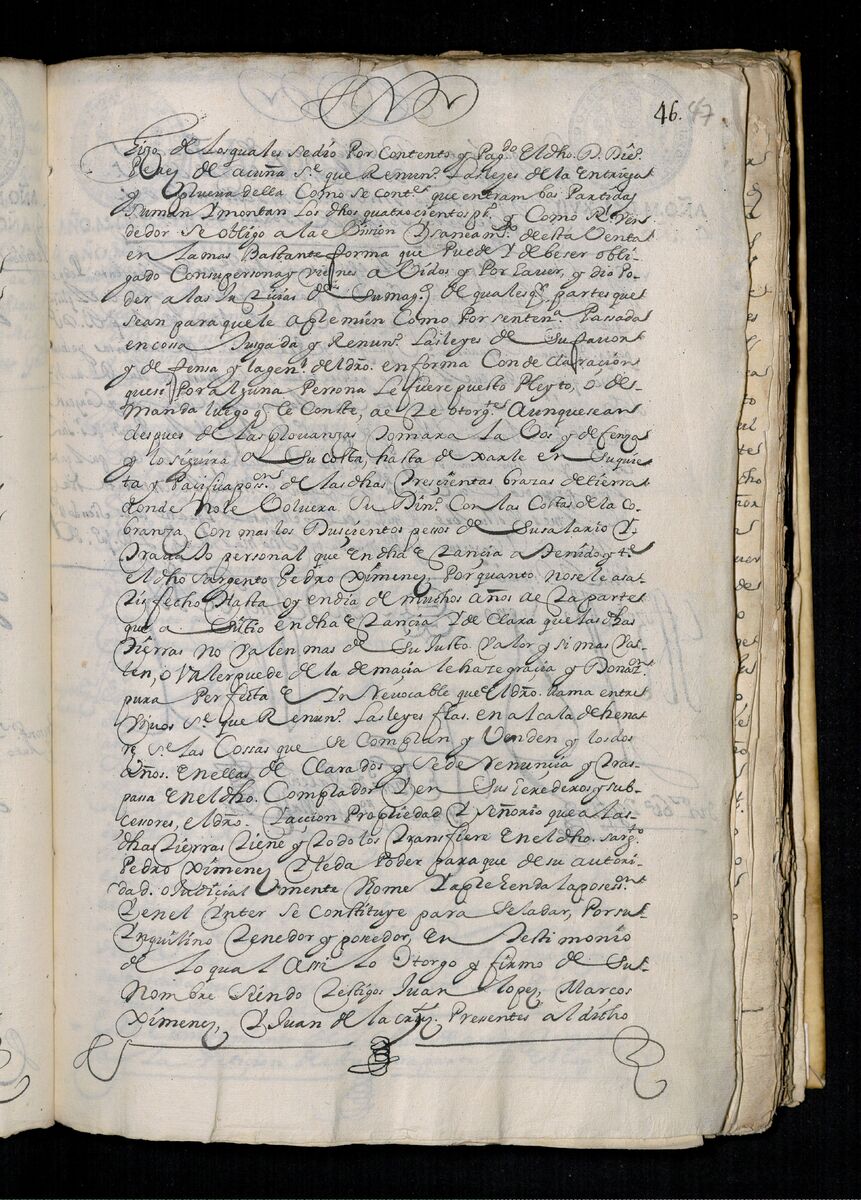 46. 47
tigo de los quales se dio Por Contento y Pagdo. El dho. D. Die.
Perez de acuña Se. que Renunº. Las leyes de la entrega
y Prueva della Como se conte. que entrambas Partidas
suman Y montan Los dhos quatrocientos ps. y Como Ren
dedor se obligo a la e Vision Y saneamto. de esta Venta
en la mas Bastante forma que Puede Y debe ser obli
gado Con su persona y vienes a Vidos y Por haver, y dio Po
der a las Justicias de su Magd. de qualesqr. partes que
sean para que le apremien Como Por sentena. Passada
en cossa Jusgada y Renunº. Las leyes de su favor
y defensa y la genl. del dro. en forma Con declaracion
que si Por alguna Persona Le fuere puesto Pleyto, o de
manda luego qe. le Conste, a este otorgte. Aunque sean
despues de Las provanzas tomara La Vos y defenza
y lo siguira a Su Costa, hasta dexarle en Su quie
ta y Pacifica poson. de las dhas trescientas brazas de tierra
donde No le Volvera Su Dinº. Con las Costas de la Co
branza, Con mas los Duscientos pesos de Su salario Y
travajo personal que en dha estancia a tenido y te
El dho Sargento Pedro Ximenez. Por quanto no se le a sa
tisfecho Hasta oy en dia de muchos años a esta parte
que a Sistio en dha estancia Y declara que las dhas
tierras no valen mas de Su Justo Valor y si mas Va
len, o Valer puede de la demacia le haze gracia y Donaon.
pura Perfecta e Yrrevocable que el dro. llama entre
Vivos Se. que Renunº. Las leyes fhas. en alcala de hena
re Se. las Cossas que se Compran y Venden y los dos
años. en ellas declarados y se de Renuncia y tras
passa en el dho. Comprador Y en Sus Erederos y sub
cesores, el dro. Y accion Propiedad Y Señorio que a las
dhas tierras tiene y todo los transfiere en el dho. Sargto.
Pedro Ximenez Y le da Poder para que de su autori
dad. o Judicial Mente tome Y aprehenda la posesn.
Y en el Ynter se Constituye para se la dar, Por su
Ynquilino tenedor y posedor, En testimonio
de lo qual Assi lo Otorgo y firmo de Su
Nombre Siendo testigos Juan Lopez, Marcos
Ximenez, Y Juan de la cruz. Presentes a l dicho